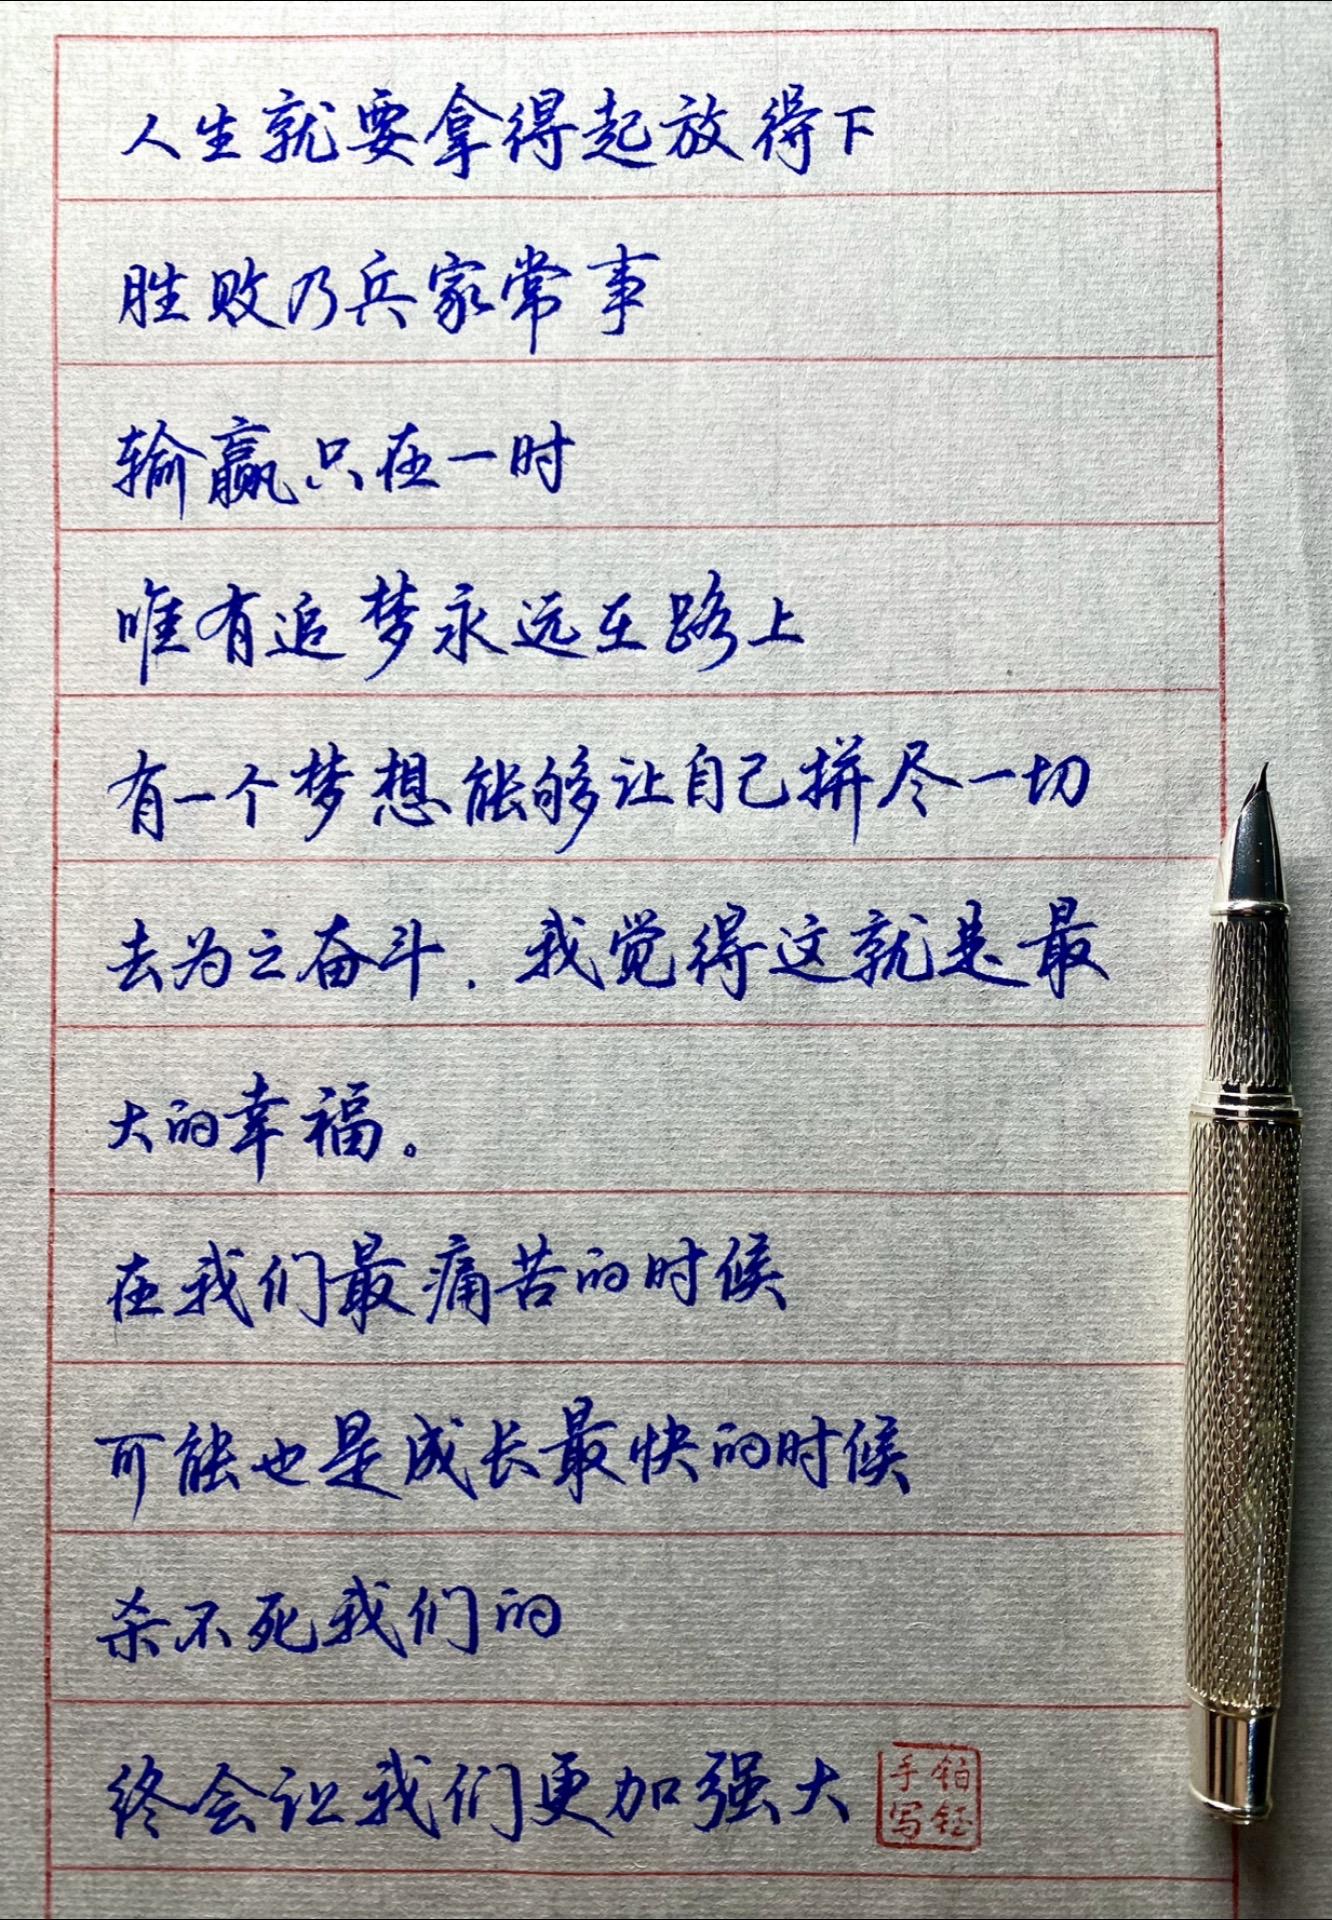 人生就要拿得起放得下
胜败乃兵家常事
输赢只在一时
唯有追梦永远在路上
有一个梦想能够让自己拼尽一切
去为之奋斗.我觉得这就是最
大的幸福。
在我们最痛苦的时候
可能也是成长最快的时候
杀不死我们的
终会让我们更加强大
铂钰手写